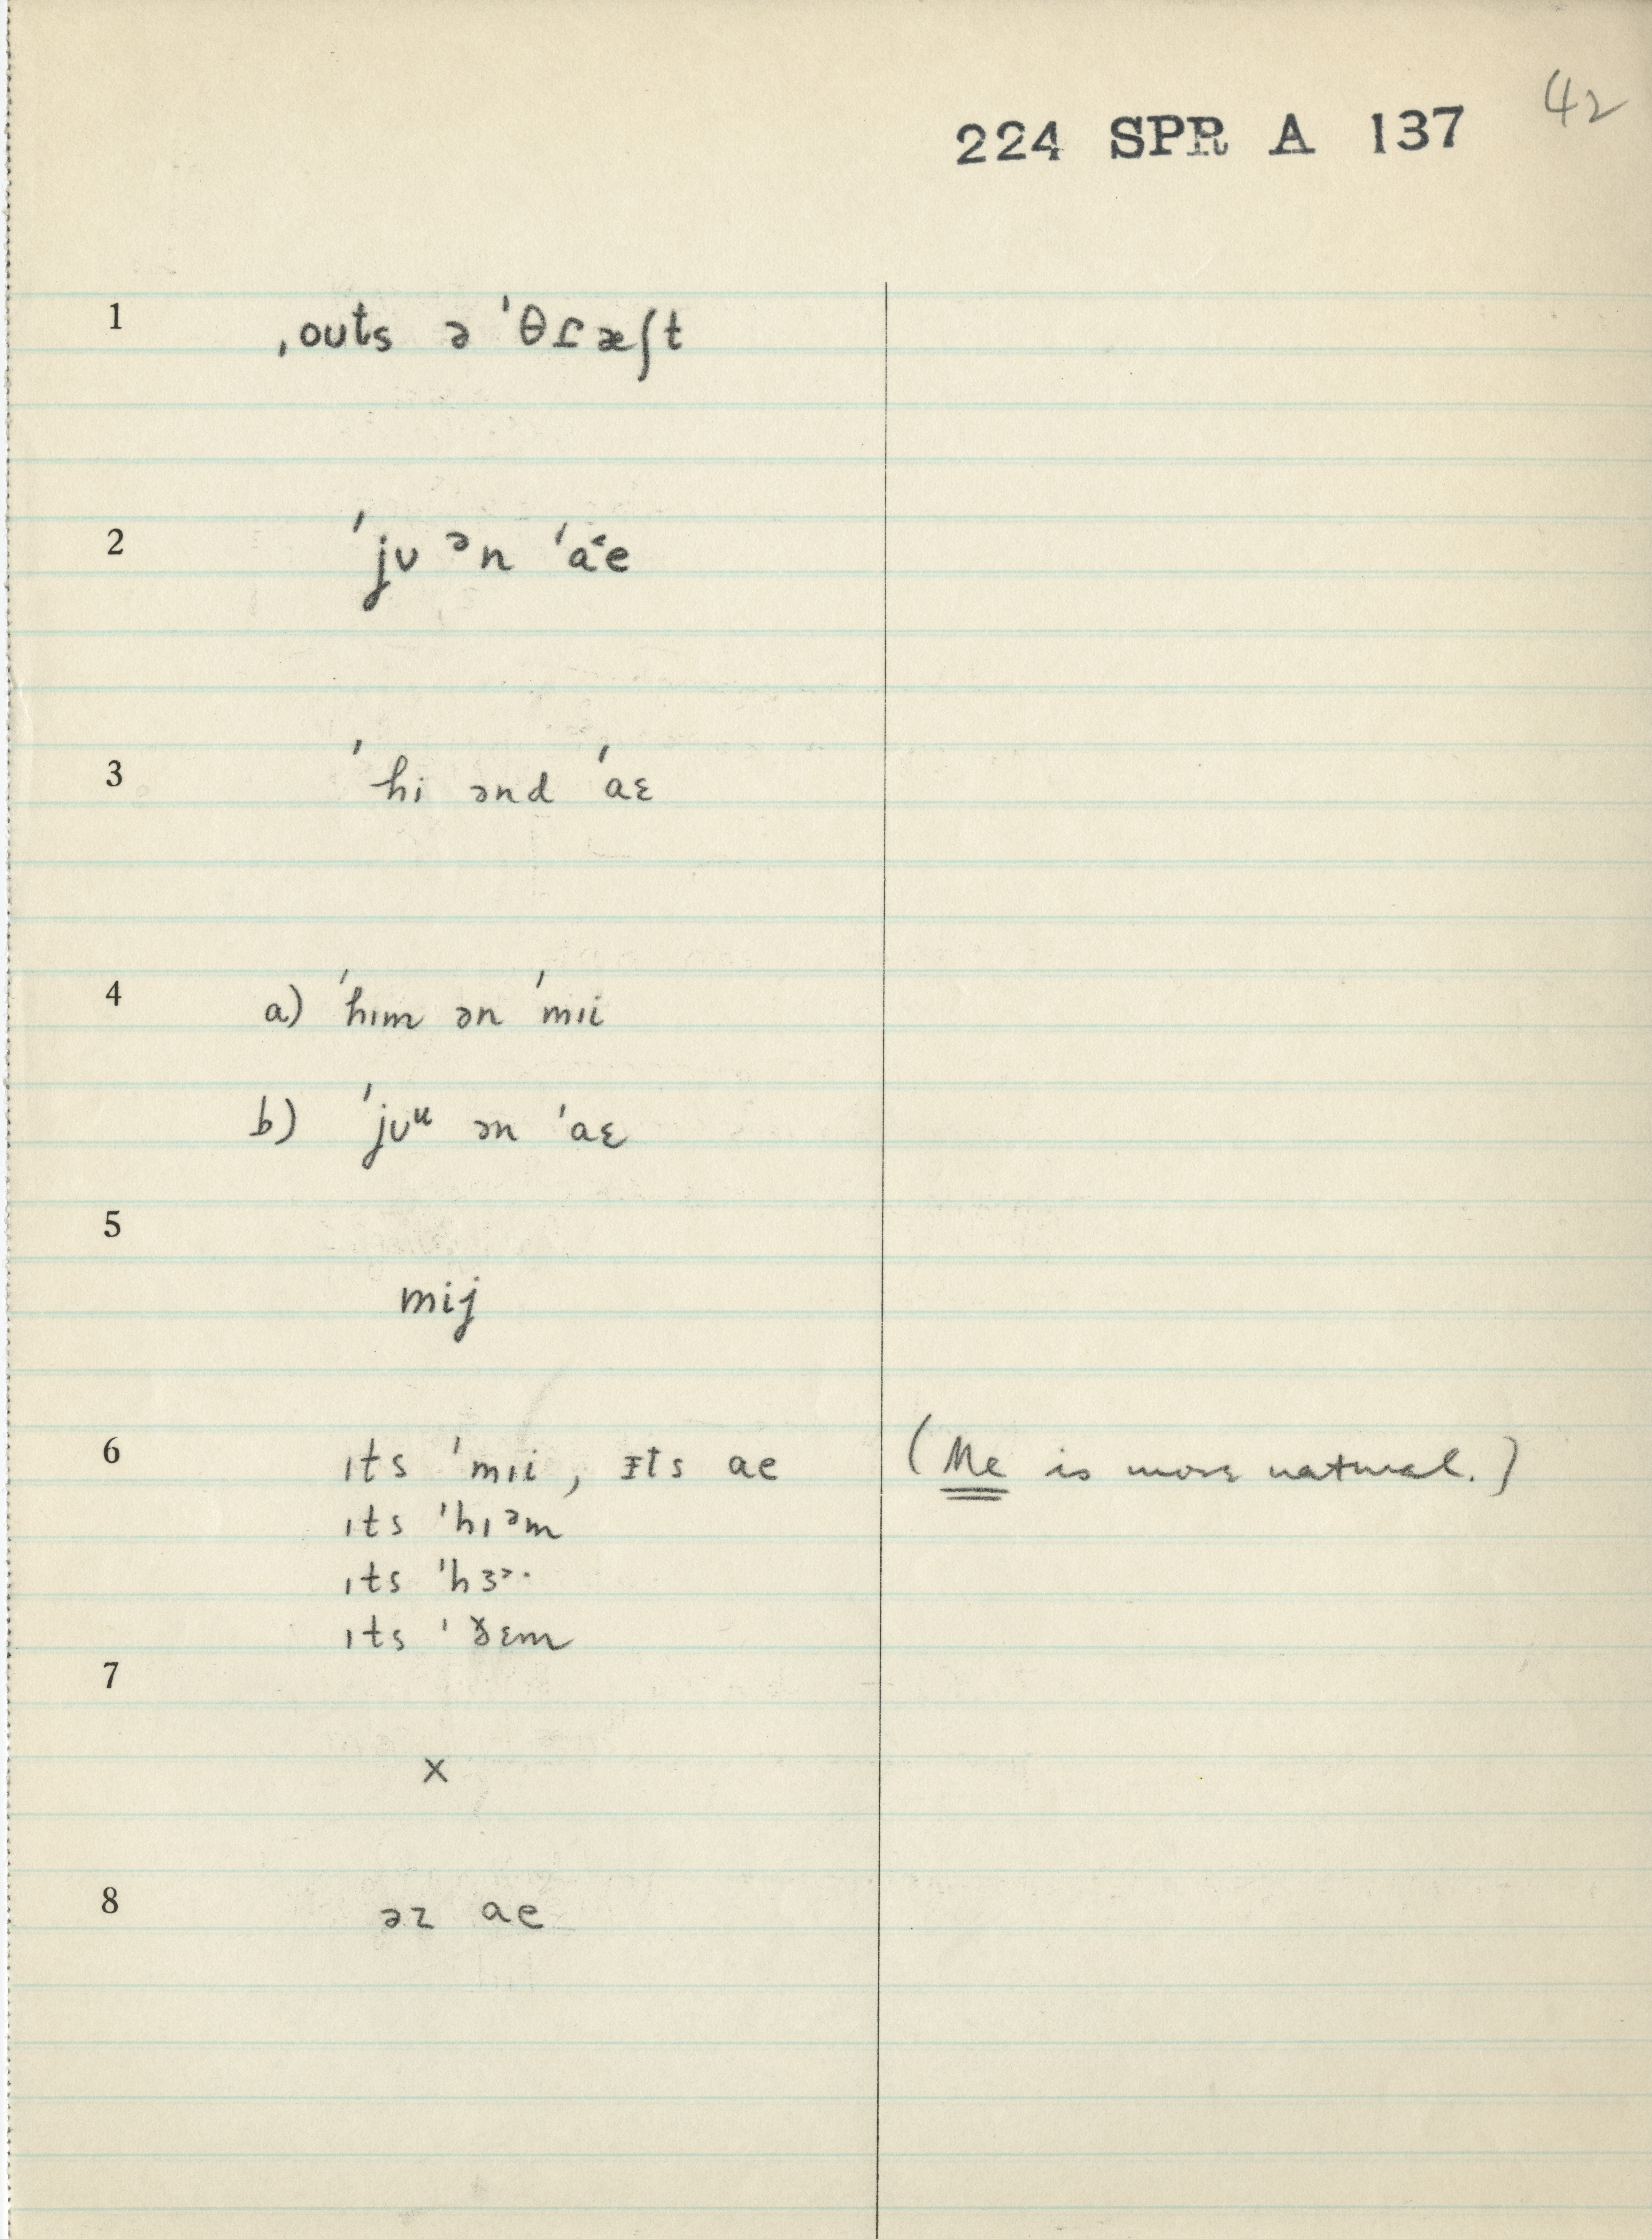 42
224 SPR A 137
1 ˌouts ə ˈθɾæʃt
2 ˈjʊ ᵊn ˈa˂e
3 ˈhi ənd ˈaɛ
4 a) ˈhɪm ən ˈmɪi
b) ˈjʊᵘ ən ˈaɛ
5
mij
6 ɪts ˈmɪi, ɪts ae (Me is more natural.)
ɪts ˈhɪᵊm
ɪts ˈhɜᵊ·
ɪts ˈðɛm
7
x
8 əz ae